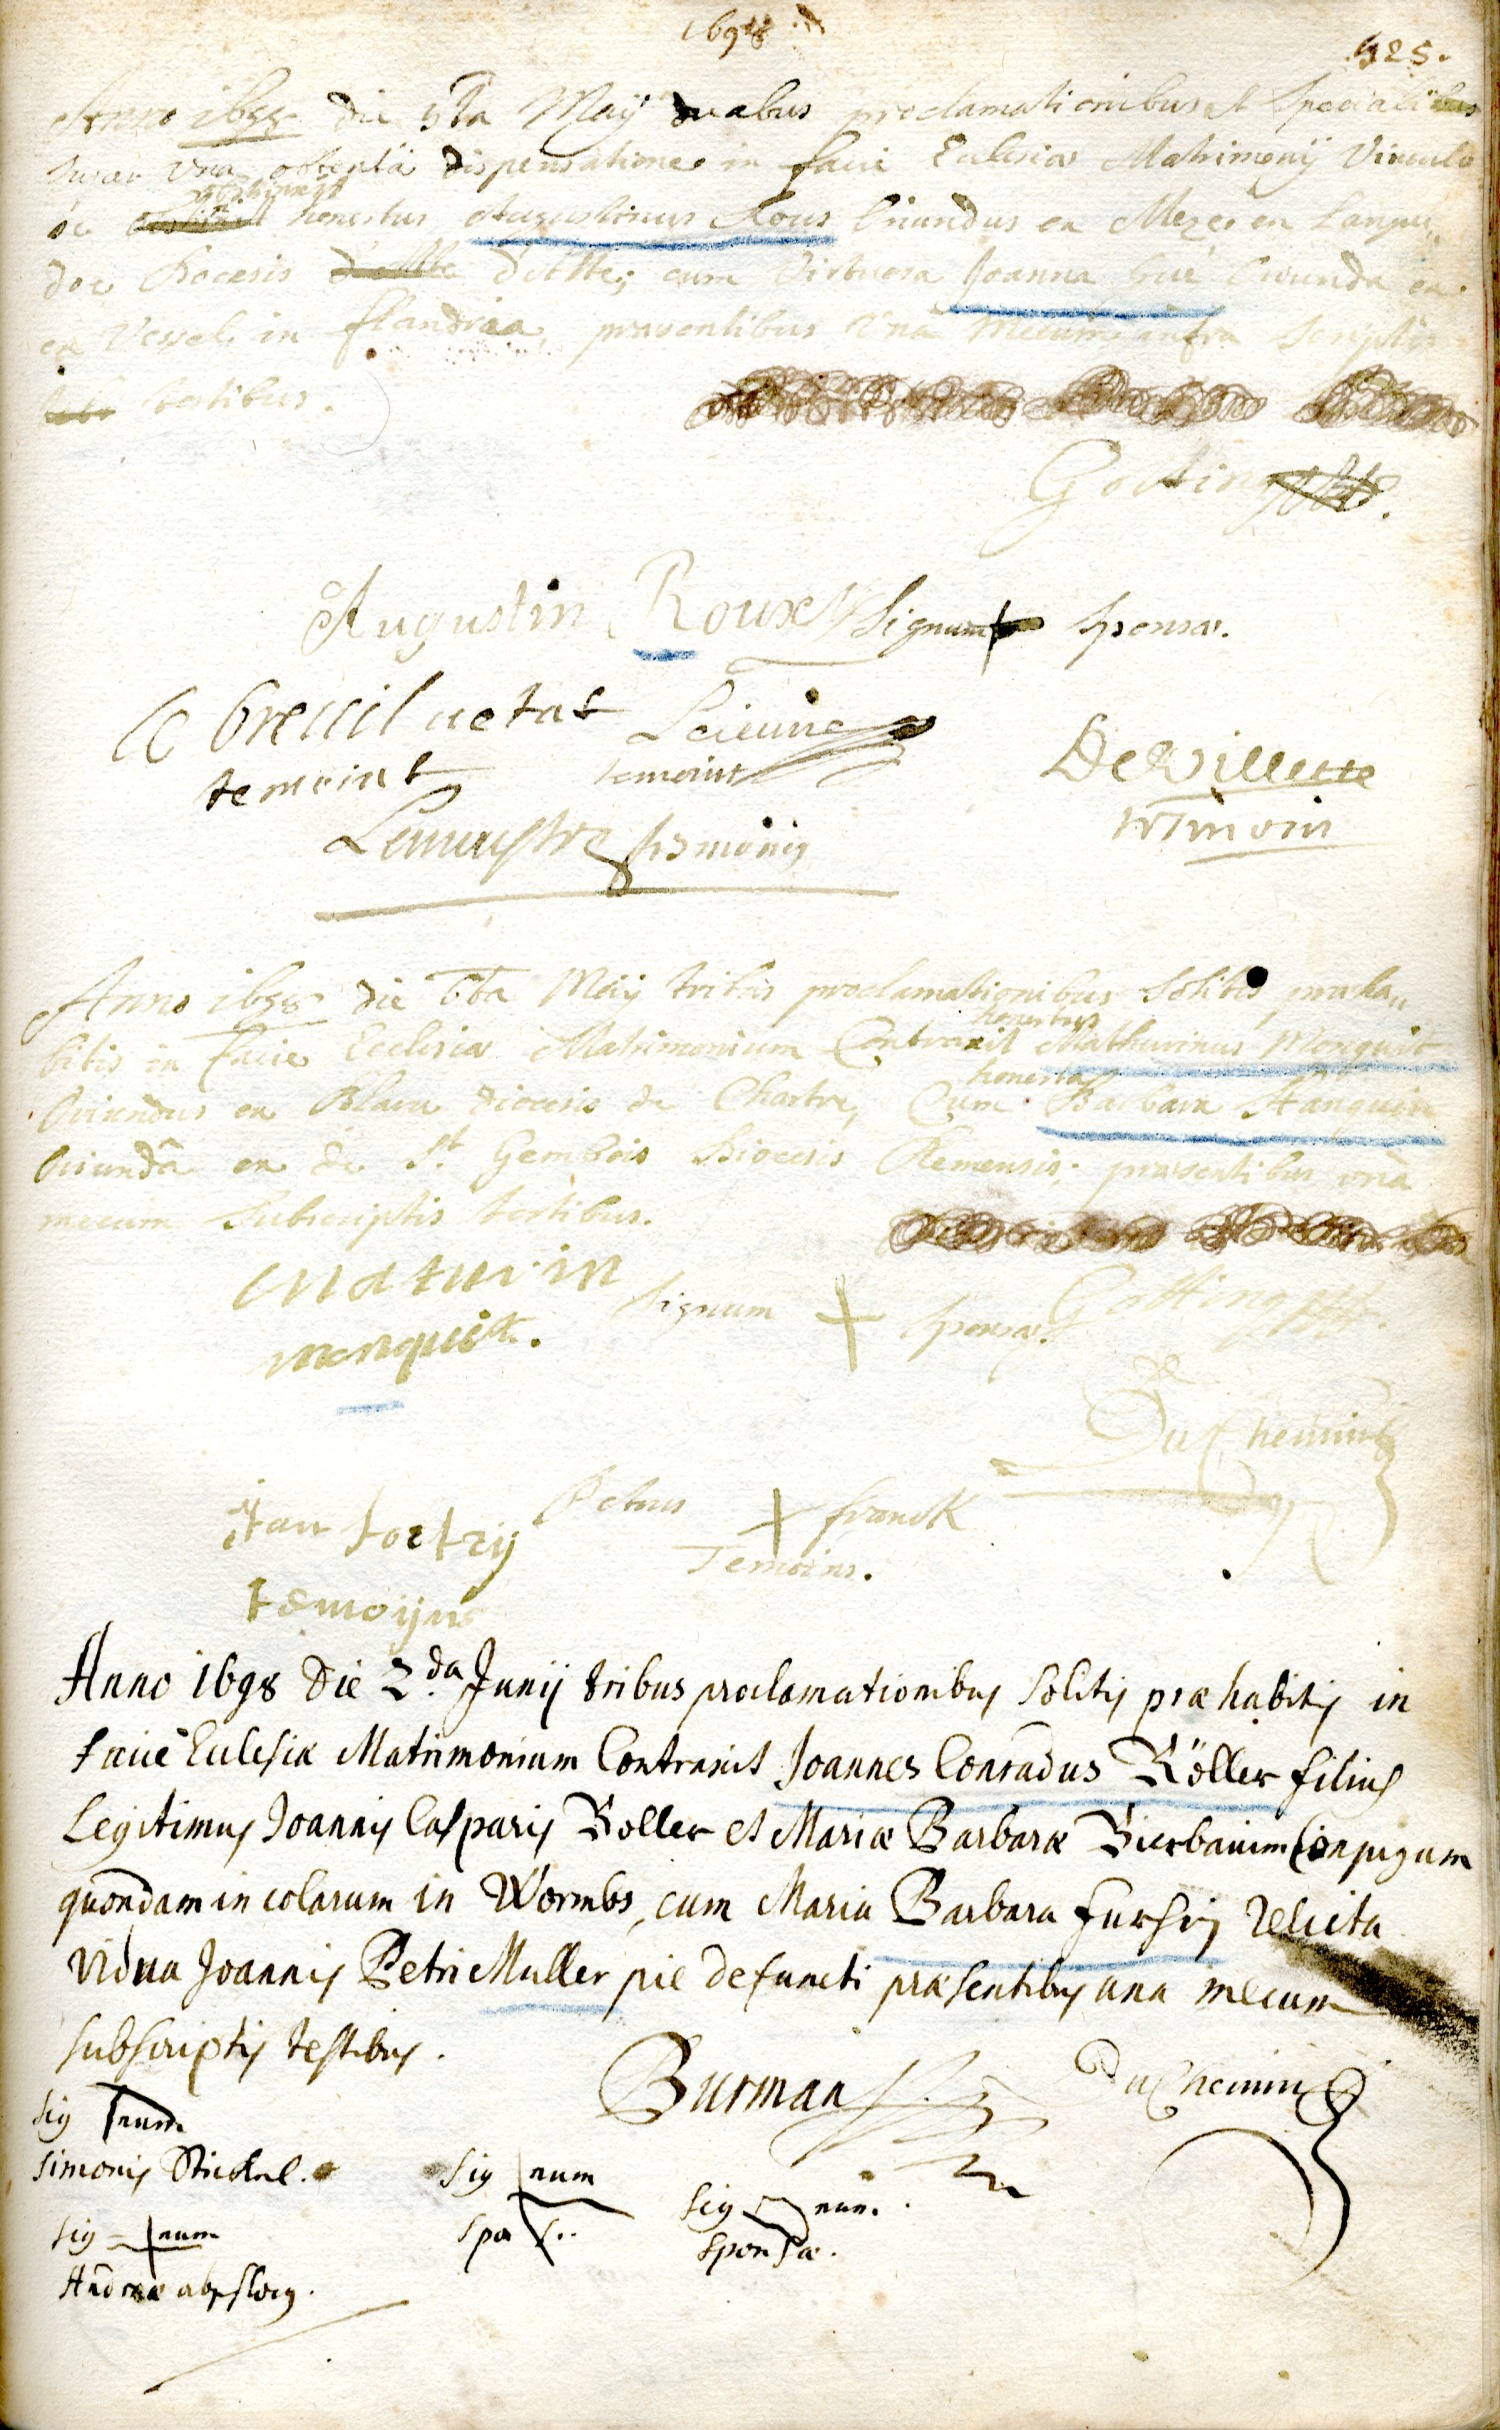 1698
425.
Anno 1698 die 5ta Maÿ duabus proclamationibus et Specialibus
super una obtentâ dispensatione in facie Ecclesiæ Matrimonÿ Vinculo
se honestus Augustinus Rous Oriundus ex Meze en Langue
doc Diocesis d'Atte, cum Virtuosa Joanna Oriunda ex
ex Vessel in flandria, præsentibus Vna mecum infra Scriptis
testibus.
Augustin Roux Signum + Sponsæ.
temoint Leieune temoint
De Villette
temoin
Lemaystre
Anno 1698 die 6ta Maÿ tribus proclamationibus Solitis præha„
honestus
bitis in facie Ecclesiæ Matrimonium Contraxit Mathurinus Monquit
honesta
Oriundus ex diocesis de Chartre, Cum Barbara Hanquin
Oriundâ ex de St Gembois Diocesis Remensis; præsentibus unâ
mecum Subscriptis testibus.
maturin Signum + Sponsæ.
monquit.
Du Chemin
Petrus + franck
Jan
Temoins.
temoijns
Anno 1698 Die 2.da Junij tribus proclamationibus Solitis præhabitis in
facie Ecclesiæ Matrimonium Contraxit Joannes Conradus Röller filius
Legitimus Joannis Casparis Roller et Mariæ Barbaræ Bierbauim Conjugum
quondam incolarum in Wormbs, cum Maria Barbara fursin relicta
vidua Joannis Petri Muller pie defuncti præsentibus una mecum
subscriptis testibus.
Burman DuChemin
Sig num
Simonis Stickel.
Sig num
Spo s..
Sig num.
Sponsæ.
Sig + num
Andreæ